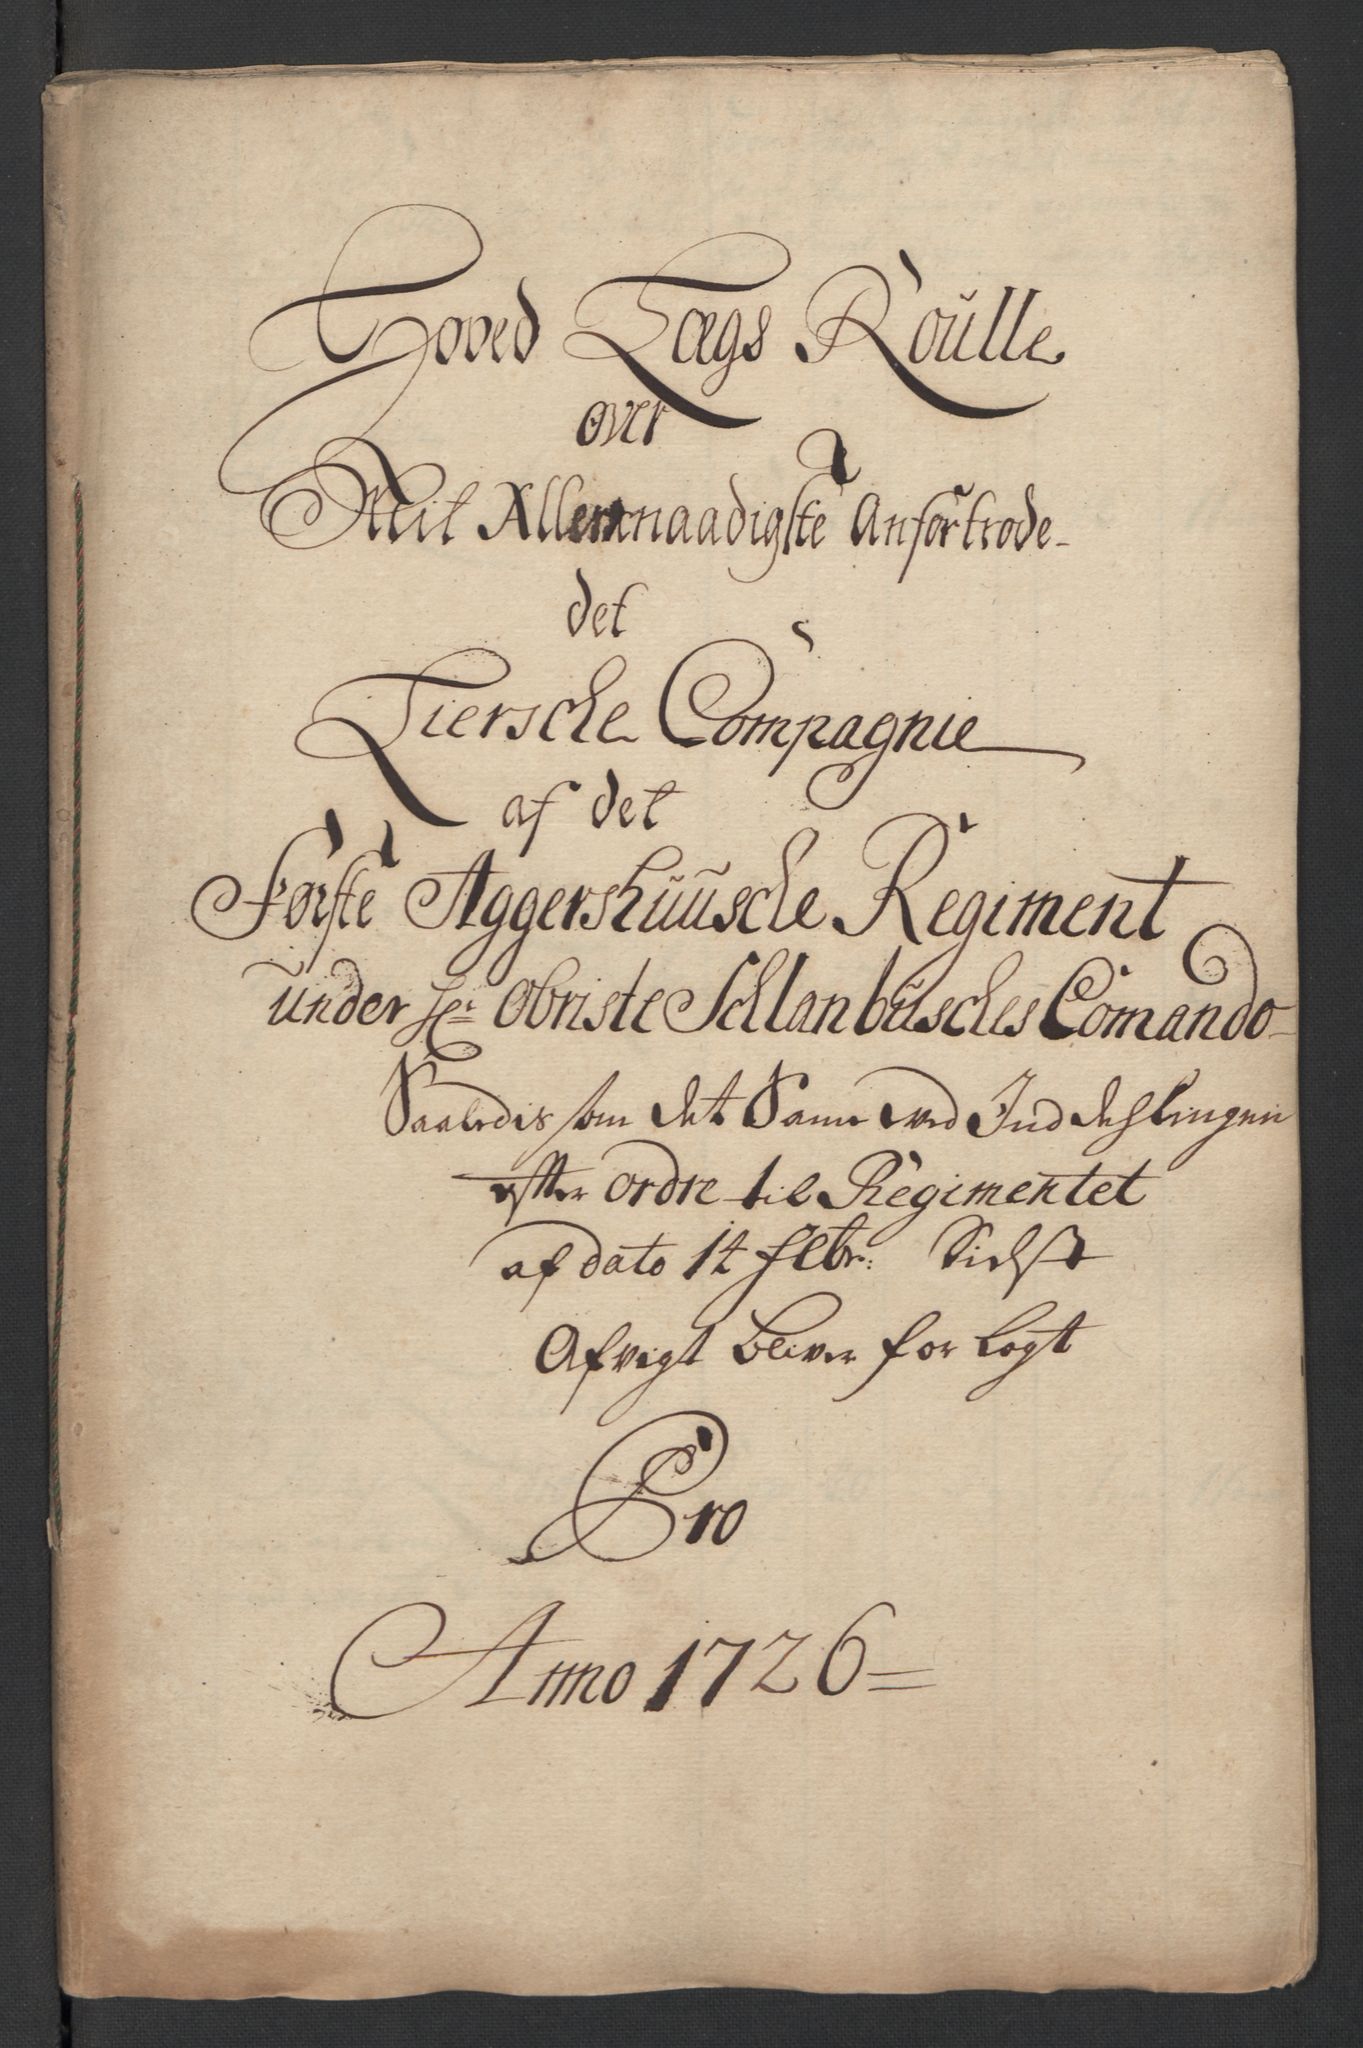 Hoved Lægs Roulle
over
Mit Allernaadigste Anfortrode
det
Tiersche Compagnie
af det
Første Aggershuusche Regiment
under Hr Obriste Schlanbusches Comando
Saaledis som det Same ved Inddehlingen
efter ordre til Regimentet
af dato 14 Febr: Sidst
Afvigt bliver for lagt
Pro
Anno 1726